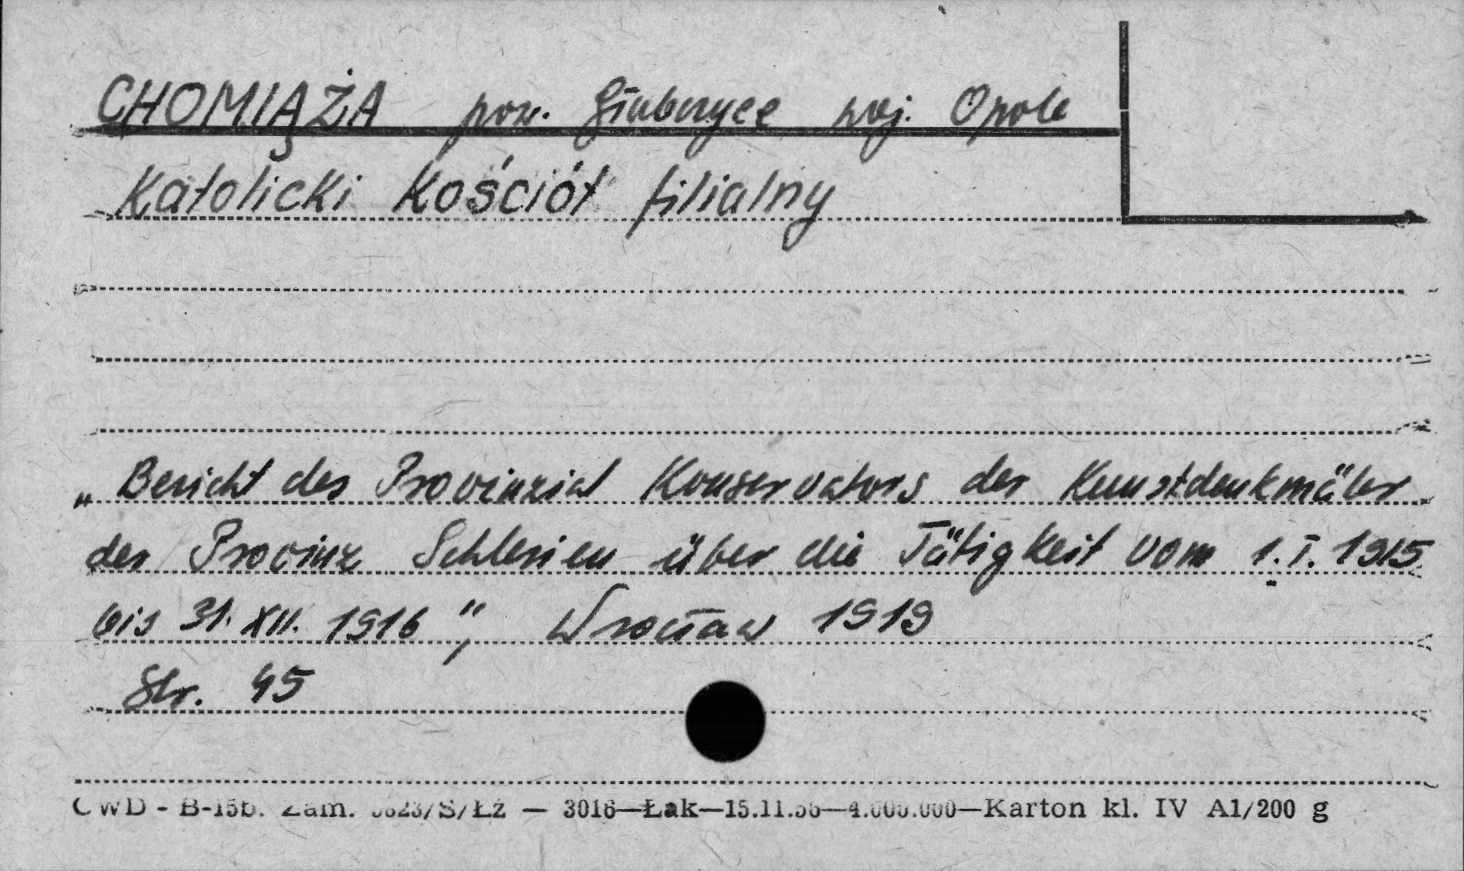 CHOMIĄŻA pow. Głubczyce woj. Opole
Katolicki Kościół filialny
„Bericht des Provinzial Konservators der Kunstdenkmäler
der Provinz Schlesien über die Tätigkeit vom 1.I.1915
bis 31.XII.1916", Wrocław 1919
Str. 45
CWD - B-15b. Zam. /S/Łż — 3016—Łak—15.11.56—4.000.000—Karton kl. IV A1/200 g